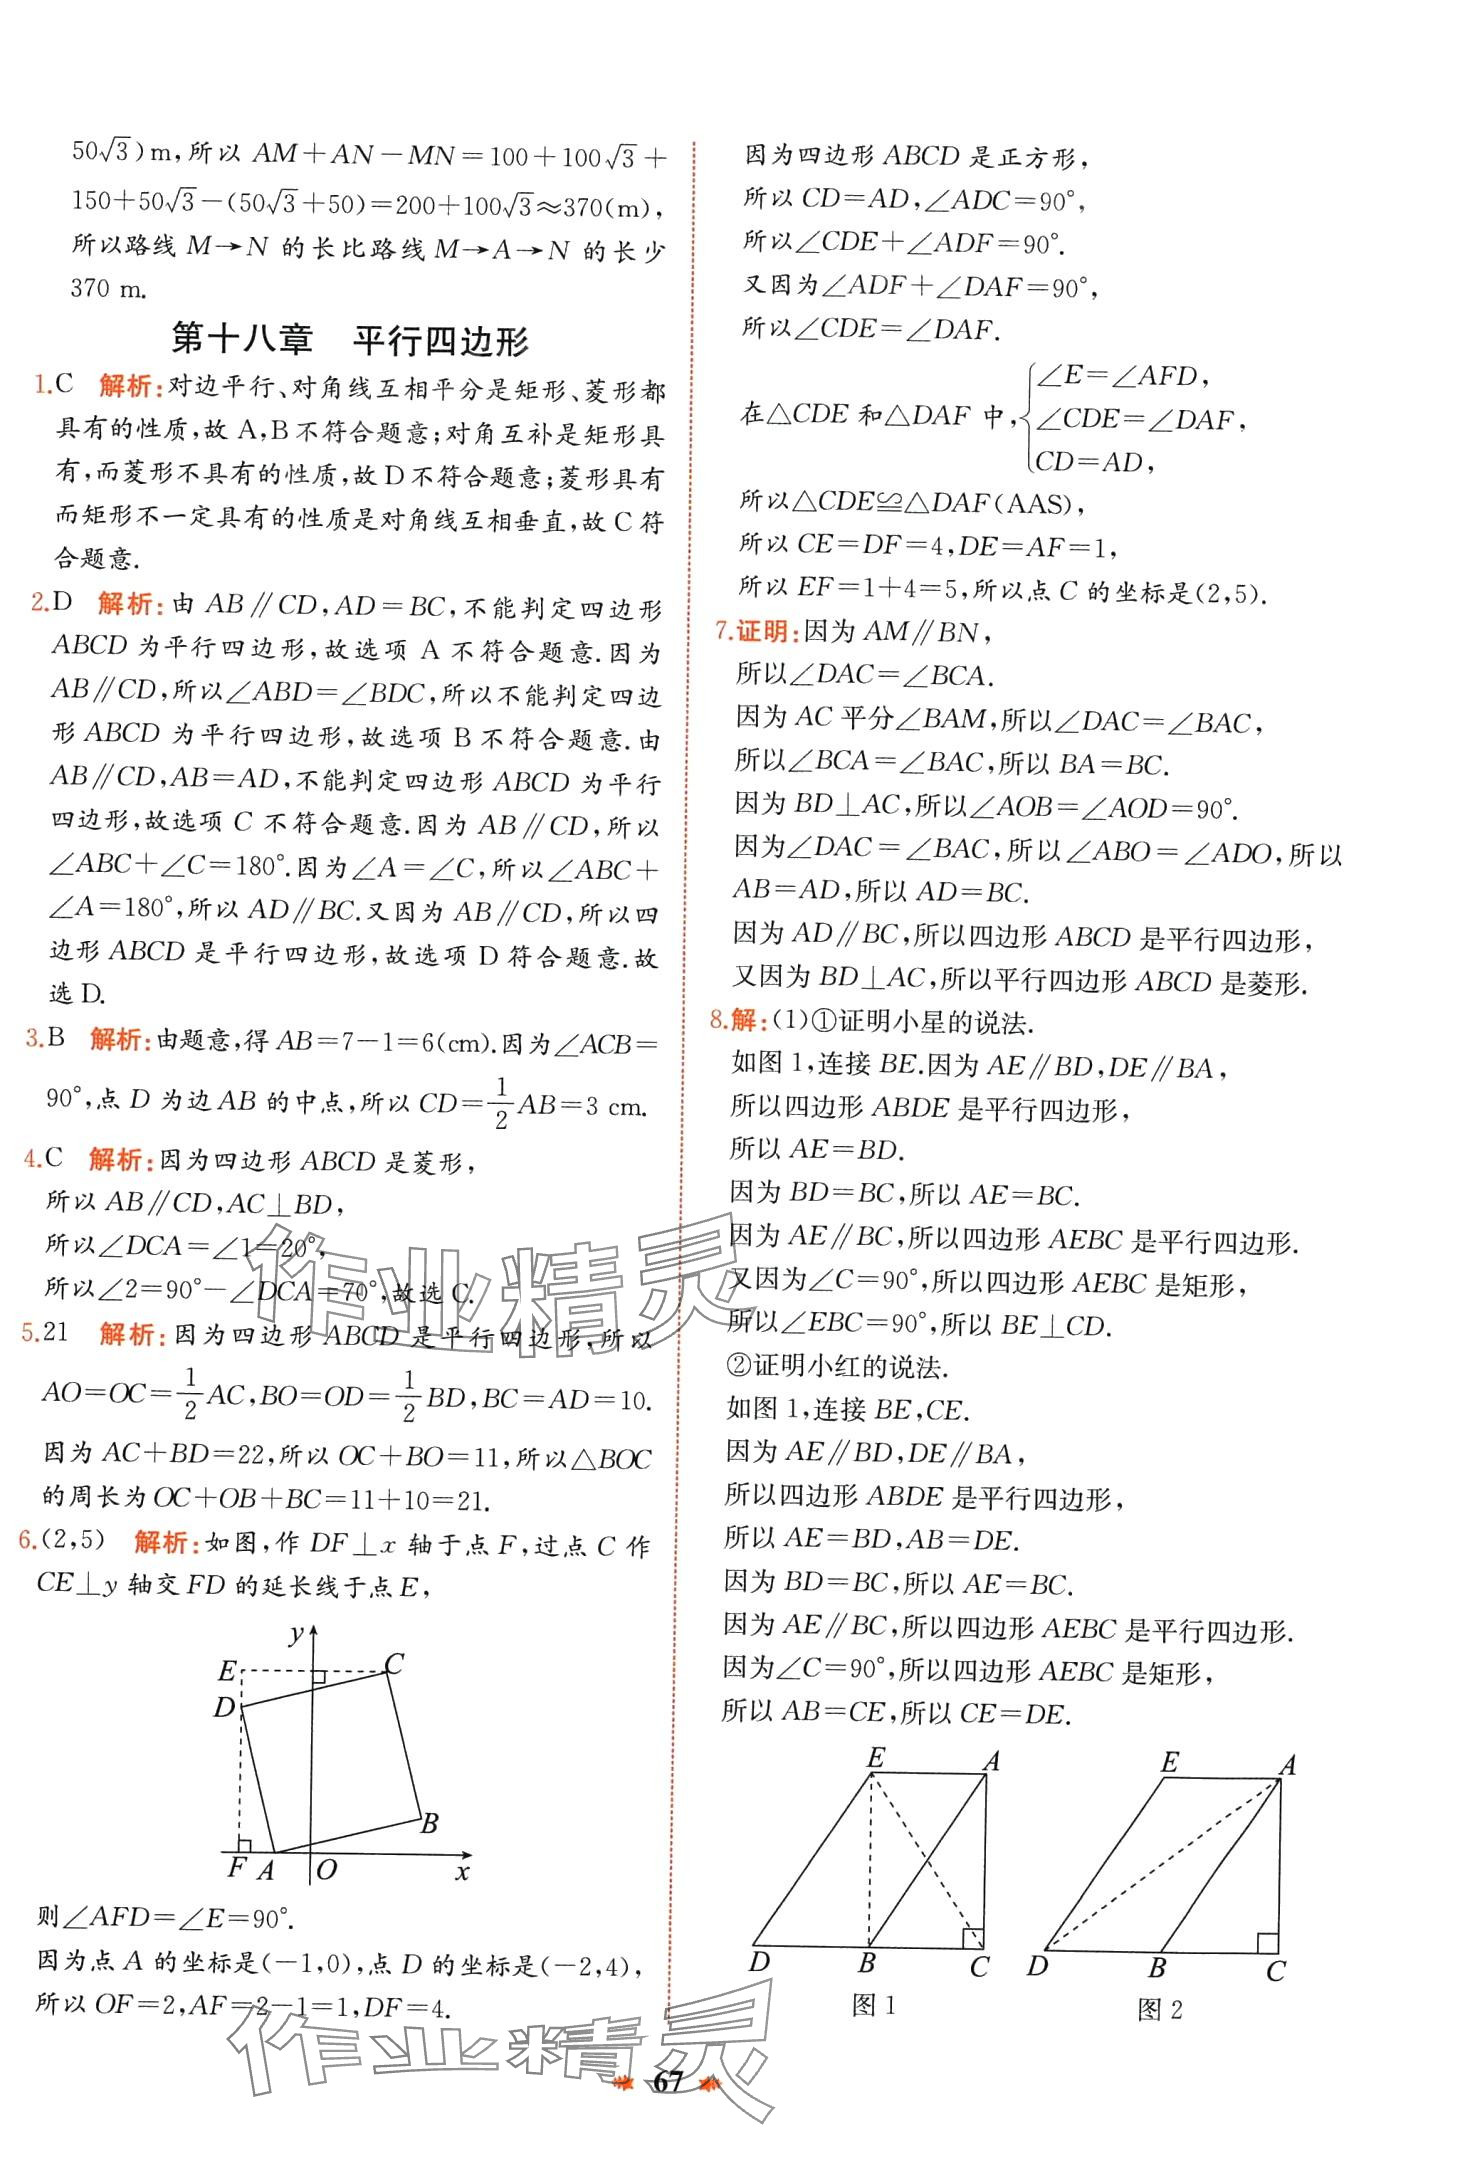 50√3)m,所以 AM+AN-MN=100+100√3+
150+50√3-(50√3+50)=200+100√3≈370(m),
所以路线 M→N 的长比路线 M→A→N 的长少
370 m.
第十八章 平行四边形
1.C 解析:对边平行、对角线互相平分是矩形、菱形都
具有的性质,故 A,B不符合题意;对角互补是矩形具
有,而菱形不具有的性质,故D不符合题意;菱形具有
而矩形不一定具有的性质是对角线互相垂直,故C符
合题意.
2.D 解析:由 AB∥CD,AD=BC,不能判定四边形
ABCD 为平行四边形,故选项 A 不符合题意.因为
AB∥CD,所以∠ABD=∠BDC,所以不能判定四边
形 ABCD 为平行四边形,故选项 B 不符合题意.由
AB∥CD,AB=AD,不能判定四边形 ABCD 为平行
四边形,故选项 C 不符合题意.因为 AB∥CD,所以
∠ABC+∠C=180°.因为∠A=∠C,所以∠ABC+
∠A=180°,所以 AD∥BC.又因为 AB∥CD,所以四
边形 ABCD 是平行四边形,故选项 D 符合题意.故
选 D.
3.B 解析:由题意,得 AB=7-1=6(cm).因为∠ACB=
90°,点 D 为边 AB 的中点,所以 CD=1/2AB=3 cm.
4.C 解析:因为四边形 ABCD 是菱形,
所以 AB∥CD,AC⊥BD,
所以∠DCA=∠1=20°,
所以∠2=90°-∠DCA=70°,故选 C.
5.21 解析:因为四边形 ABCD 是平行四边形,所以
AO=OC=1/2AC,BO=OD=1/2BD,BC=AD=10.
因为 AC+BD=22,所以 OC+BO=11,所以△BOC
的周长为 OC+OB+BC=11+10=21.
6.(2,5) 解析:如图,作 DF⊥x 轴于点 F,过点 C 作
CE⊥y 轴交 FD 的延长线于点 E,
y
E
C
D
B
F A O x
则∠AFD=∠E=90°.
因为点 A 的坐标是(-1,0),点 D 的坐标是(-2,4),
所以 OF=2,AF=2-1=1,DF=4.
因为四边形 ABCD 是正方形,
所以 CD=AD,∠ADC=90°,
所以∠CDE+∠ADF=90°.
又因为∠ADF+∠DAF=90°,
所以∠CDE=∠DAF.
∠E=∠AFD,
在△CDE 和△DAF 中,{∠CDE=∠DAF,
CD=AD,
所以△CDE≌△DAF(AAS),
所以 CE=DF=4,DE=AF=1,
所以 EF=1+4=5,所以点 C 的坐标是(2,5).
7.证明:因为 AM∥BN,
所以∠DAC=∠BCA.
因为 AC 平分∠BAM,所以∠DAC=∠BAC,
所以∠BCA=∠BAC,所以 BA=BC.
因为 BD⊥AC,所以∠AOB=∠AOD=90°.
因为∠DAC=∠BAC,所以∠ABO=∠ADO,所以
AB=AD,所以 AD=BC.
因为 AD∥BC,所以四边形 ABCD 是平行四边形,
又因为 BD⊥AC,所以平行四边形 ABCD 是菱形.
8.解:(1)①证明小星的说法.
如图 1,连接 BE.因为 AE∥BD,DE∥BA,
所以四边形 ABDE 是平行四边形,
所以 AE=BD.
因为 BD=BC,所以 AE=BC.
因为 AE∥BC,所以四边形 AEBC 是平行四边形.
又因为∠C=90°,所以四边形 AEBC 是矩形,
所以∠EBC=90°,所以 BE⊥CD.
②证明小红的说法.
如图 1,连接 BE,CE.
因为 AE∥BD,DE∥BA,
所以四边形 ABDE 是平行四边形,
所以 AE=BD,AB=DE.
因为 BD=BC,所以 AE=BC.
因为 AE∥BC,所以四边形 AEBC 是平行四边形.
因为∠C=90°,所以四边形 AEBC 是矩形,
所以 AB=CE,所以 CE=DE.
E A
D B C
图 1
E A
D B C
图 2
作业精灵
作业精灵
67